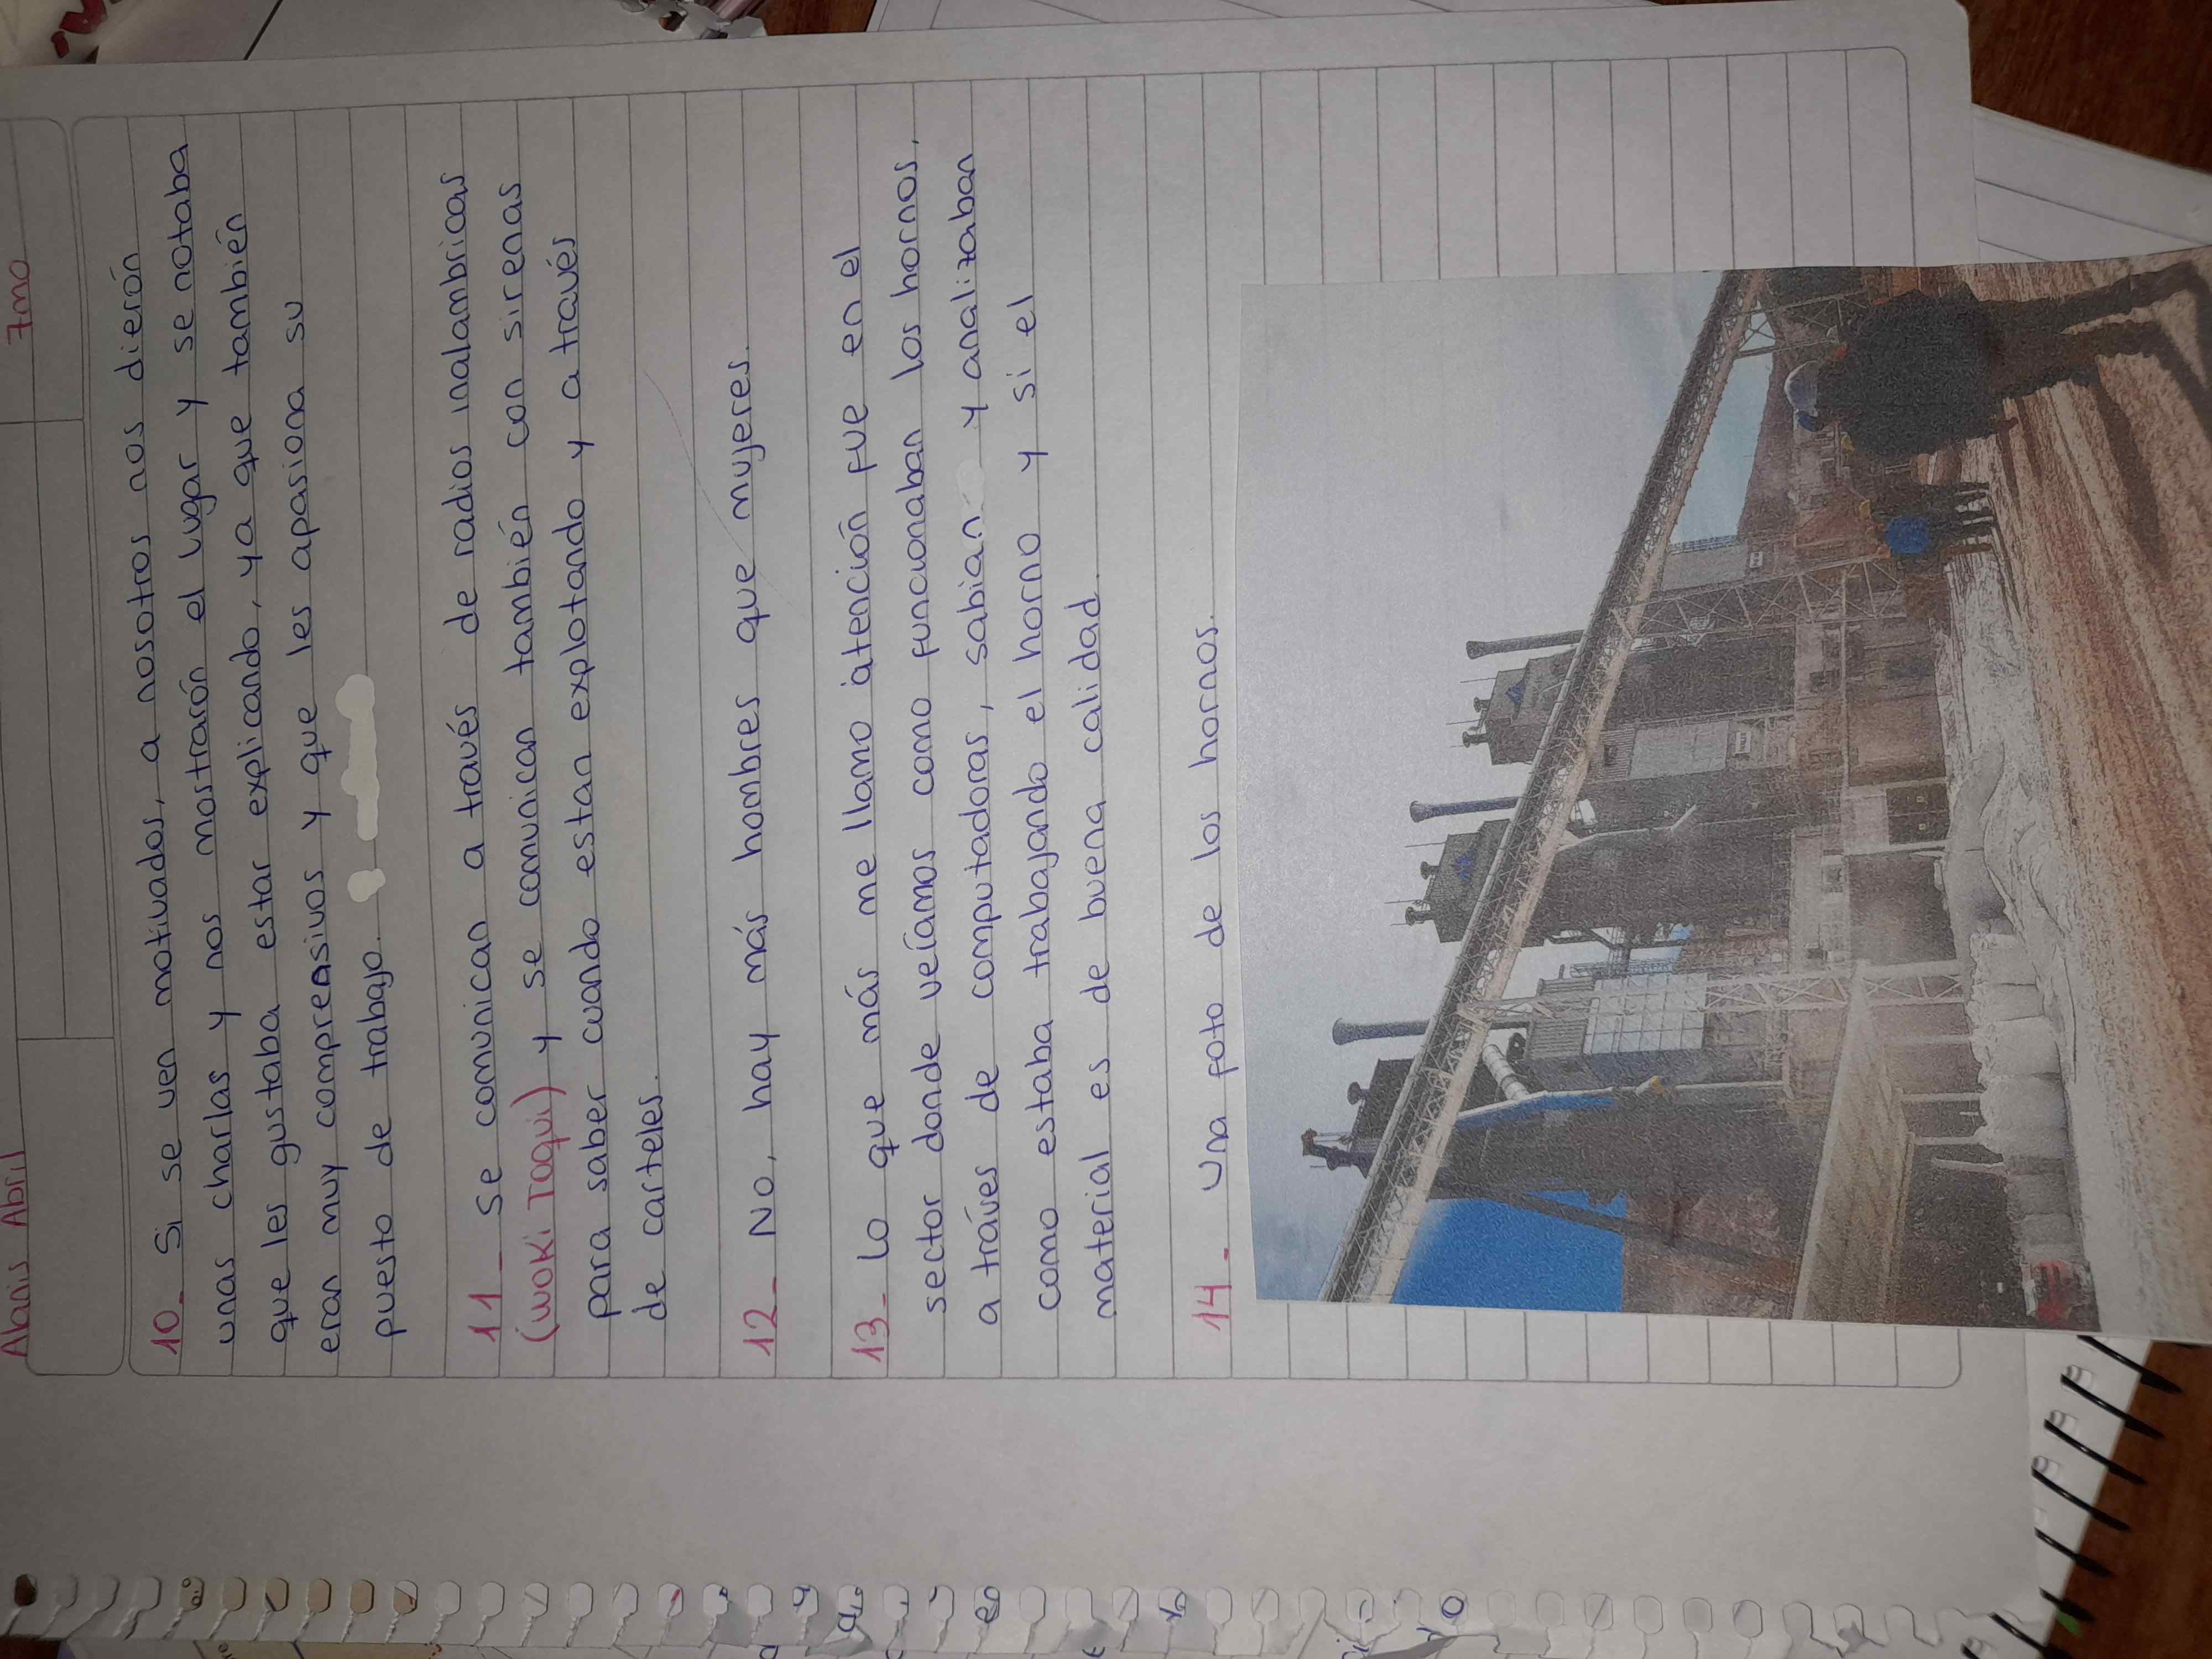 Alanis Abril 7mo
10_ Si se ven motivados, a nosotros nos dierón
unas charlas y nos mostrarón el lugar y se notaba
que les gustaba estar explicando, ya que también
eran muy comprensivos y que les apasiona su
puesto de trabajo.
11_ se comunican a través de radios inalambricas
(woki Toqui) y se comunican también con sirenas
para saber cuando estan explotando y a través
de carteles.
12_ No, hay más hombres que mujeres.
13_ lo que más me llamo atención fue en el
sector donde veíamos como funcionaban los hornos,
a tráves de computadoras, sabian y analizaban
como estaba trabajando el horno y si el
material es de buena calidad.
14_ una foto de los hornos.